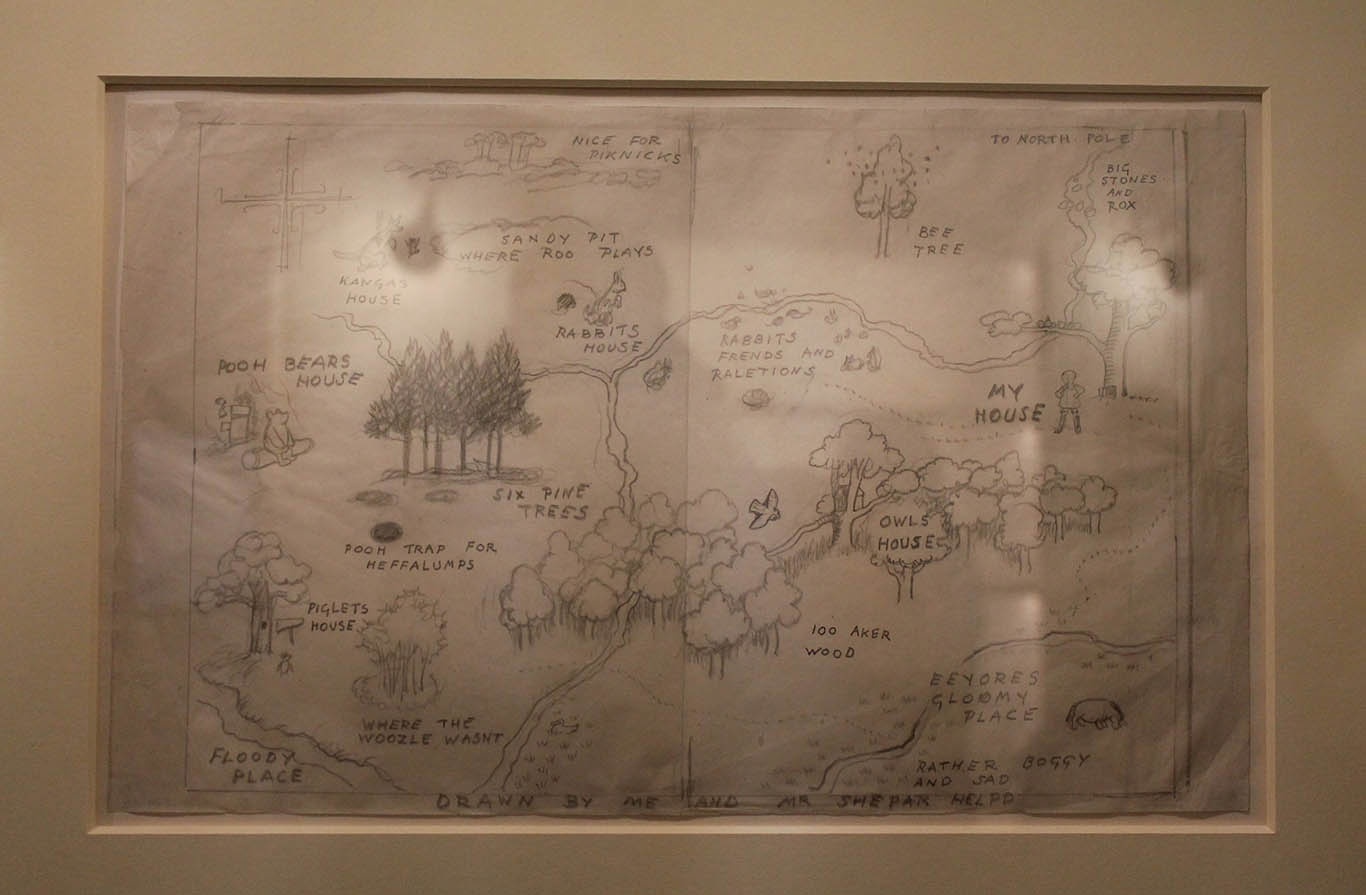 NICE FOR
PIKNICKS
TO NORTH POLE
BIG
STONES
AND
ROX
BEE
TREE
SANDY PIT
WHERE ROO PLAYS
KANGAS
HOUSE
RABBITS
HOUSE
RABBITS
FRENDS AND
RALETIONS
POOH BEARS
HOUSE
MY
HOUSE
SIX PINE
TREES
OWLS
HOUSE
POOH TRAP FOR
HEFFALUMPS
PIGLETS
HOUSE
100 AKER
WOOD
EEYORES
GLOOMY
PLACE
WHERE THE
WOOZLE WASNT
FLOODY
PLACE
RATHER BOGGY
AND SAD
DRAWN BY ME AND MR SHEPAR HELPD